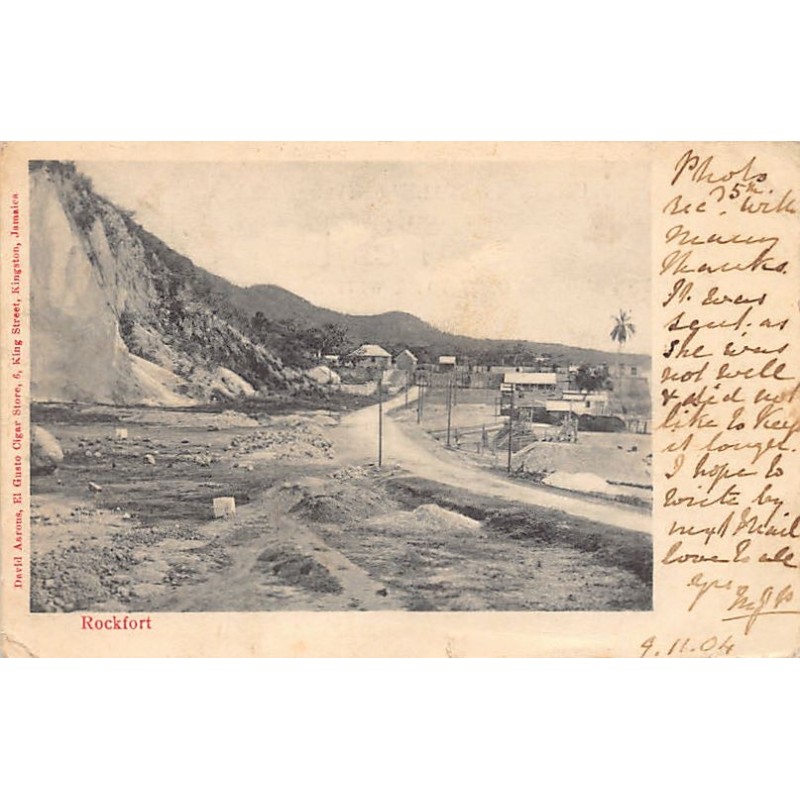 David Aarons, El Gusto Cigar Store, 6, King Street, Kingston, Jamaica
Rockfort
Photo
rec'd 5th. with
many
thanks.
It was
sent. as
she was
not well
& did not
like to keep
it longer.
I hope to
write by
next Mail
love to all
9.11.04